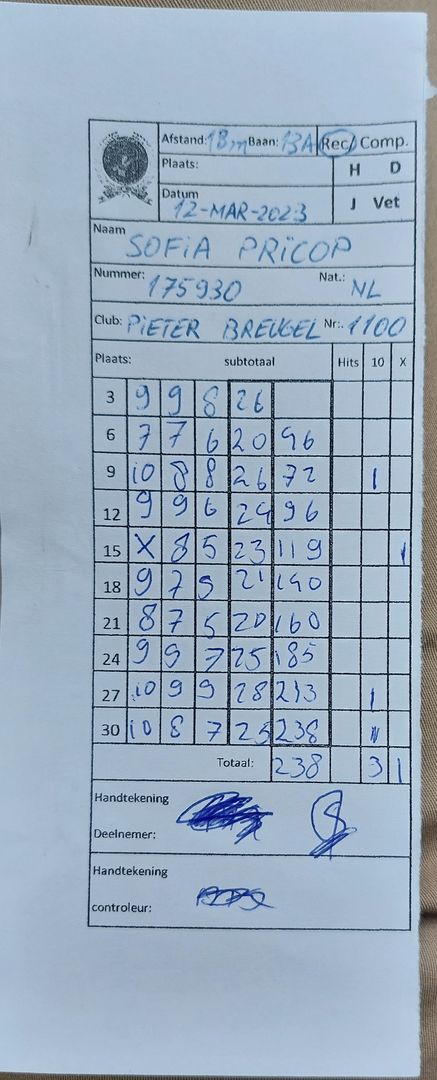 Afstand: 18m Baan: 13A Rec/ Comp.
Plaats: H D
Datum 12-MAR-2023 J Vet
Naam SOFIA PRICOP
Nummer: 175930 Nat.: NL
Club: PIETER BREUGEL Nr.: 1100
Plaats: subtotaal Hits 10 X
3 9 9 8 26
6 7 7 6 20 46
9 10 8 8 26 72 1
12 9 9 6 24 96
15 X 8 5 23 119 1
18 9 7 5 21 140
21 8 7 5 20 160
24 9 9 7 25 185
27 10 9 9 28 213 1
30 10 8 7 25 238
Totaal: 238 3 1
Handtekening
Deelnemer:
Handtekening
controleur: